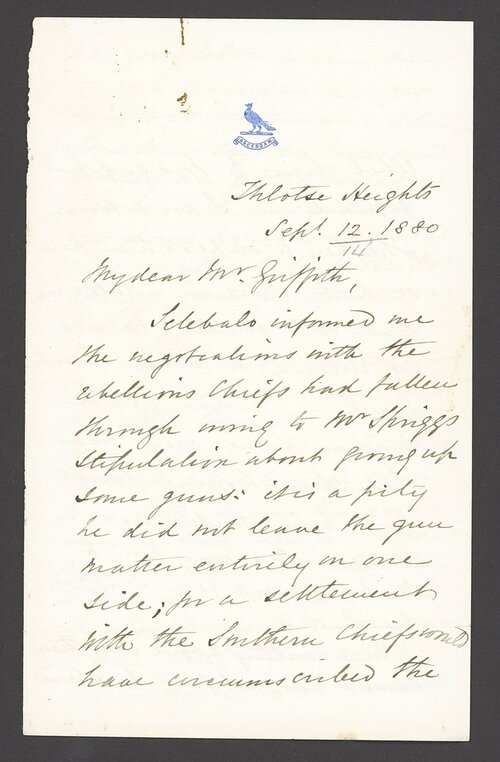 ASCENDAM
Thlotse Heights
Sept. 12. 1880
14
My dear Mr. Griffith,
Selebalo informed me
the negotiations with the
rebellious Chiefs had fallen
through owing to Mr Spriggs
stipulation about giving up
some guns: it is a pity
he did not leave the gun
matter entirely on one
side; for a settlement
with the Southern Chiefs would
have circumscribed the